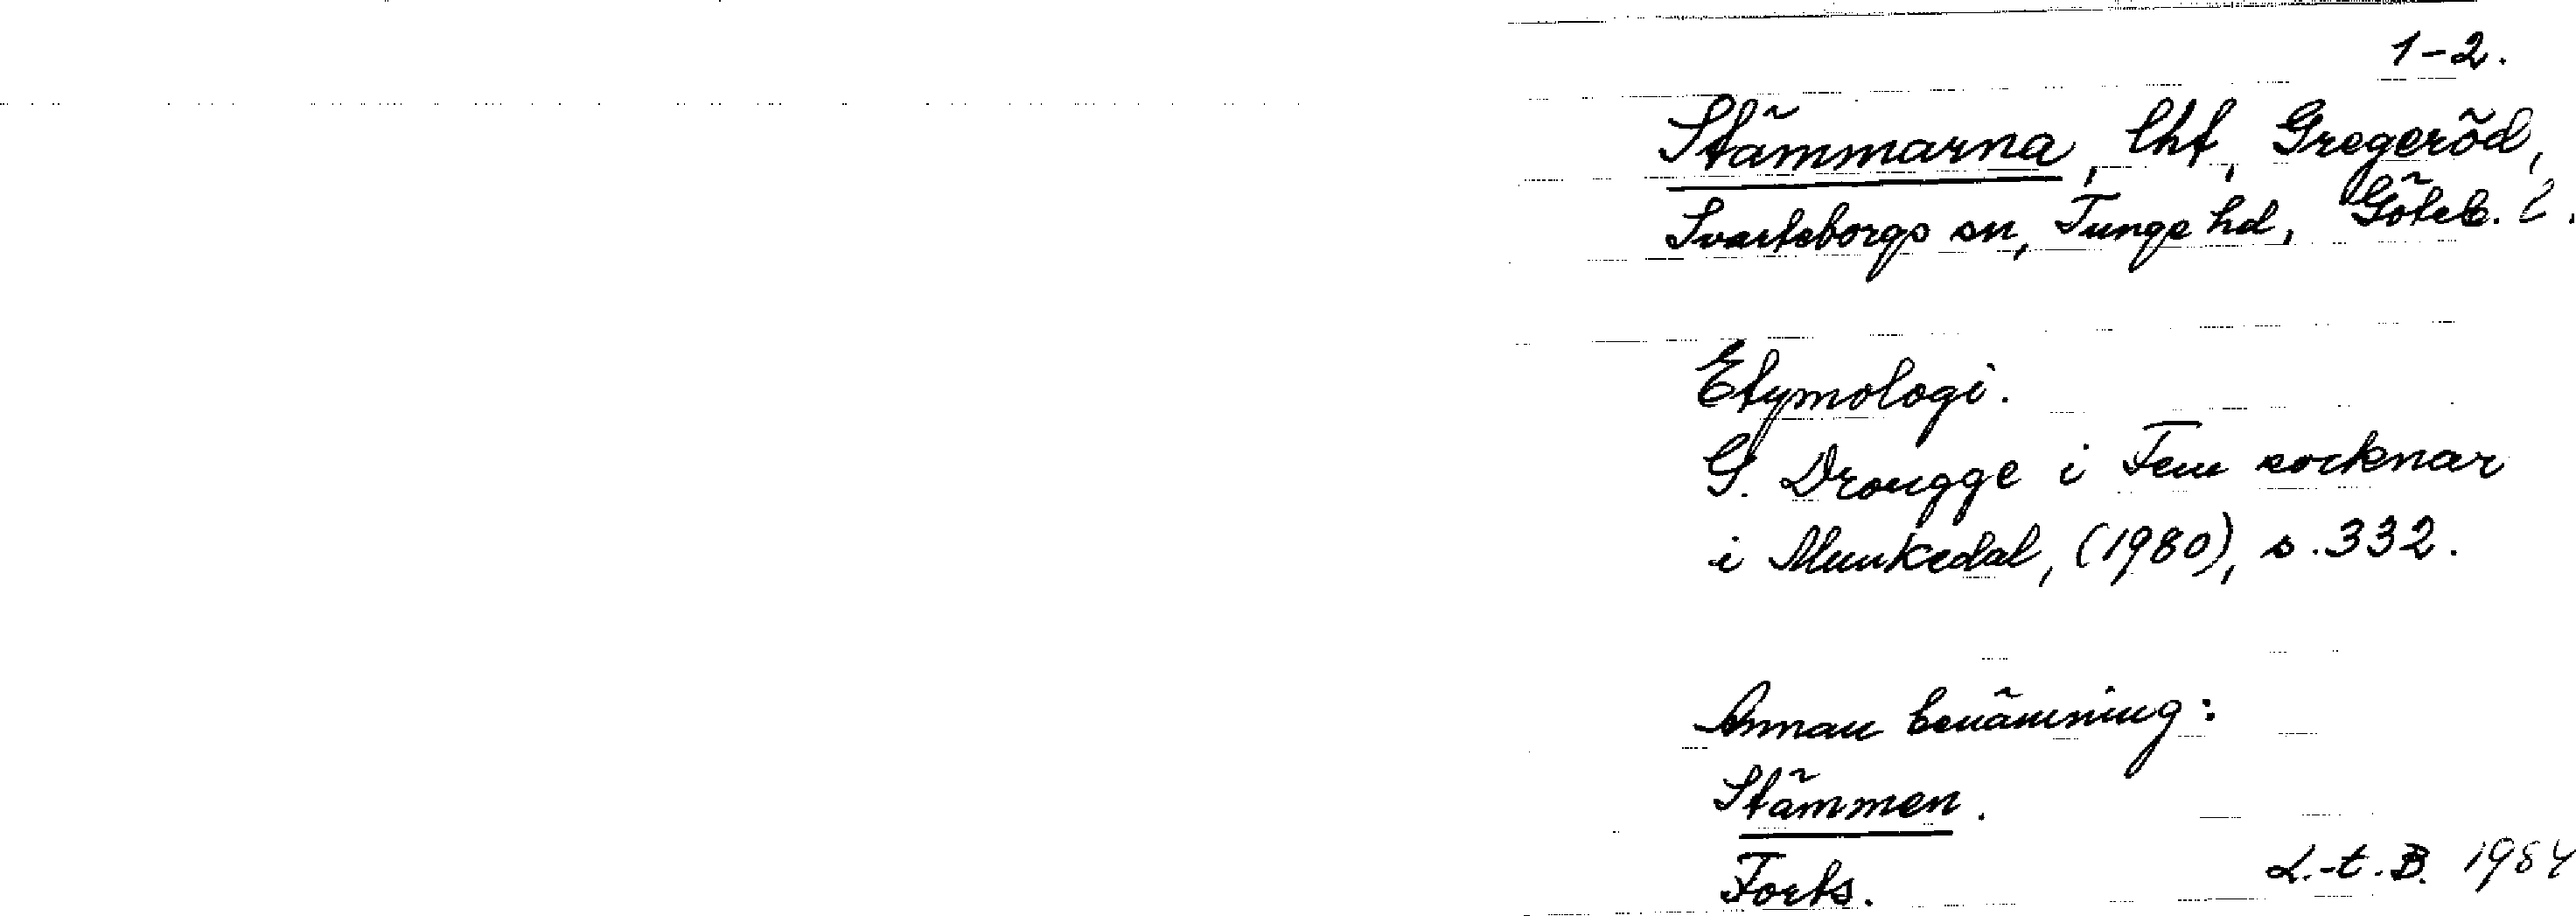 1-2.
Stämmarna, lht, Gregeröd,
Svarteborgs sn, Tunge hd, Göteb. l.
Etymologi.
G. Drougge i Fem socknar
i Munkedal, (1980), s. 332.
Annan benämning:
Stämmen.
Forts. L.-t. B. 1984